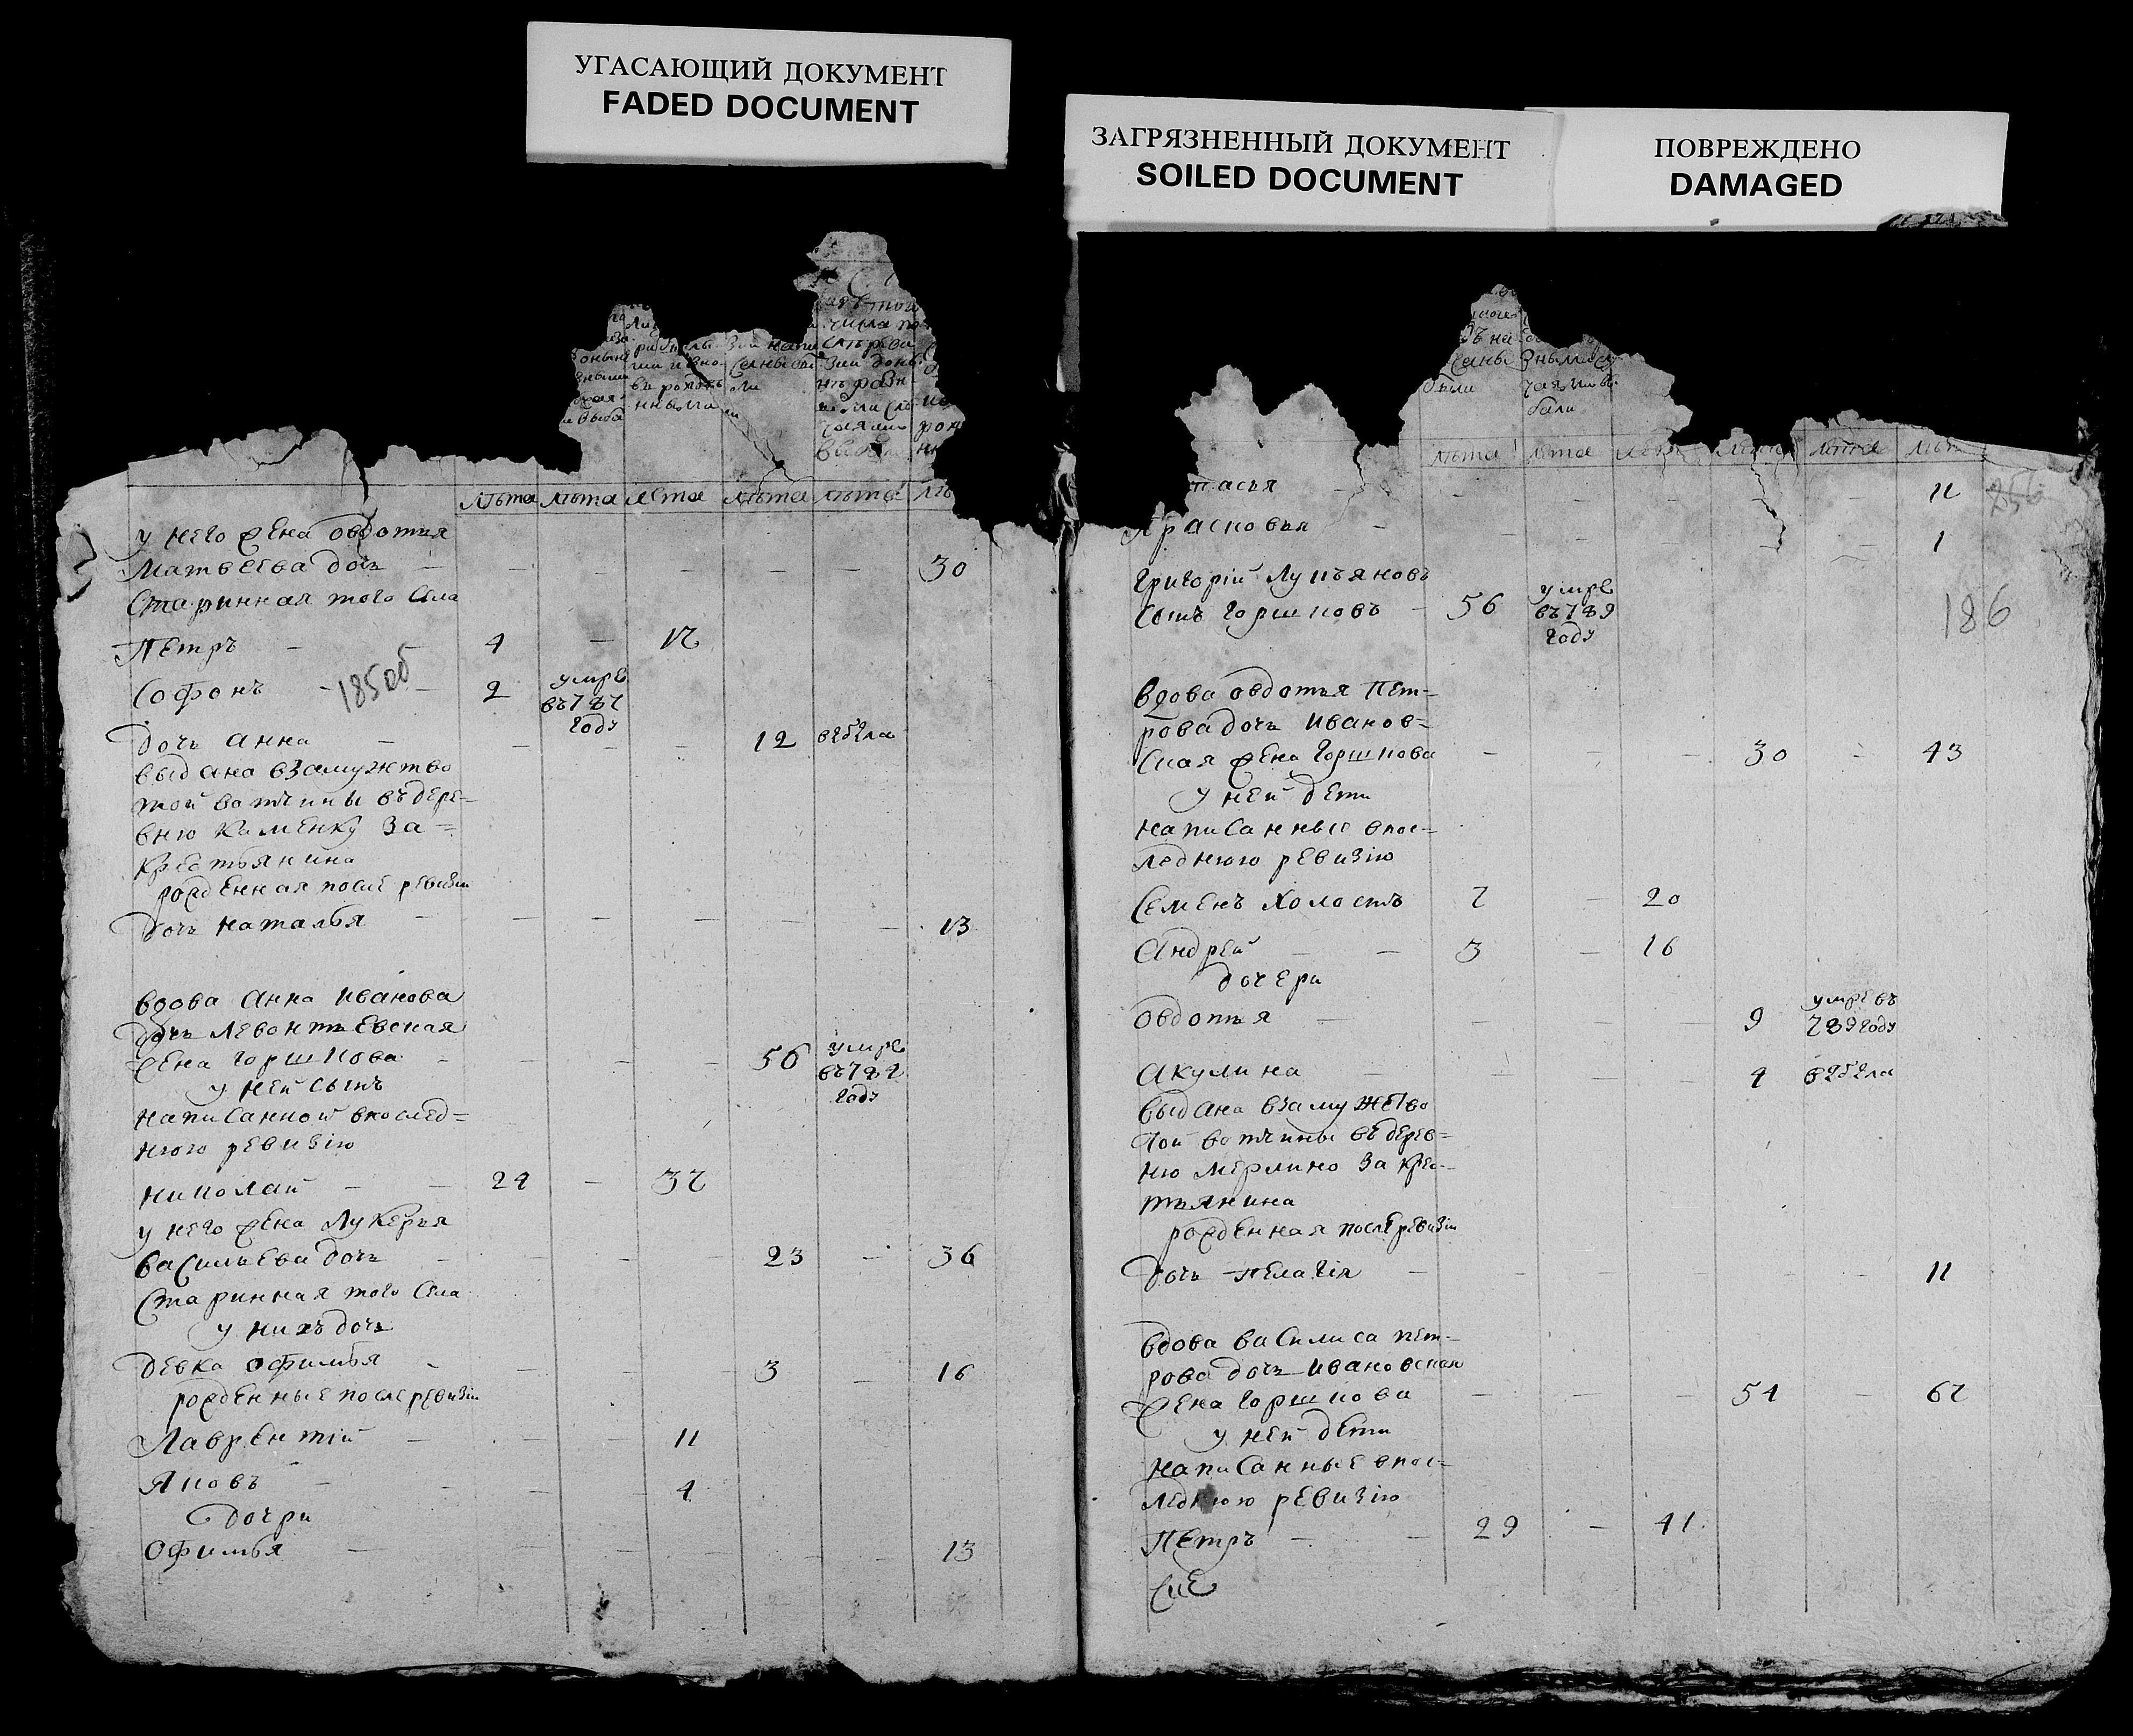 УГАСАЮЩИЙ ДОКУМЕНТ
FADED DOCUMENT
ЗАГРЯЗНЕННЫЙ ДОКУМЕНТ
SOILED DOCUMENT
ПОВРЕЖДЕНО
DAMAGED
лѣта лѣта лѣта лѣта лѣта
у него жена овдотья
матвеева дочь — — — — — — 30
старинная того села
петръ — 4 — 17
софонъ — 2 умре въ 787 году
185об
дочь анна — — — — 12 выбыла
выдана взамужтво
той вотчины въ дере=
вню каменку за=
крестьянина
рожденная после ревизии
дочь наталья — — — — — — 13
вдова анна иванова
дочь левонтьевская
жена горшкова — — — — 56 умре въ 784 году
у ней сынъ
написанной впослед=
нюю ревизию
николай — — 24 — 37
у него жена лукерья
васильева дочь — — — — 23 — 36
старинная того села
у нихъ дочь
девка офимья — — — — 3 — 16
рожденные после ревизии
лаврентий — — — 11
яковъ — — — 4
дочри
офимья — — — — — — 13
лѣта лѣта лѣта лѣта лѣта лѣта
11
прасковья — — — — — — 1
186
григорий лупьяновъ
сынъ горшковъ — 56 умре въ 789 году
вдова овдотья пет=
рова дочь иванов=
ская жена горшкова — — — 30 — 43
у ней дети
написанные впос=
леднюю ревизию
семенъ холостъ 7 — 20
андрей — — 3 — 16
дочери
овдотья — — — — 9 умре въ 789 году
акулина — — — — 4 выбыла
выдана взамужство
той вотчины въ дерев=
ню мерлино за крес=
тьянина
рожденная после ревизии
дочь пелагия — — — — — — 11
вдова василиса пет=
рова дочь ивановская
жена горшкова — — — 54 — 67
у ней дети
написанные впос=
леднюю ревизию
петръ — — 29 — 41